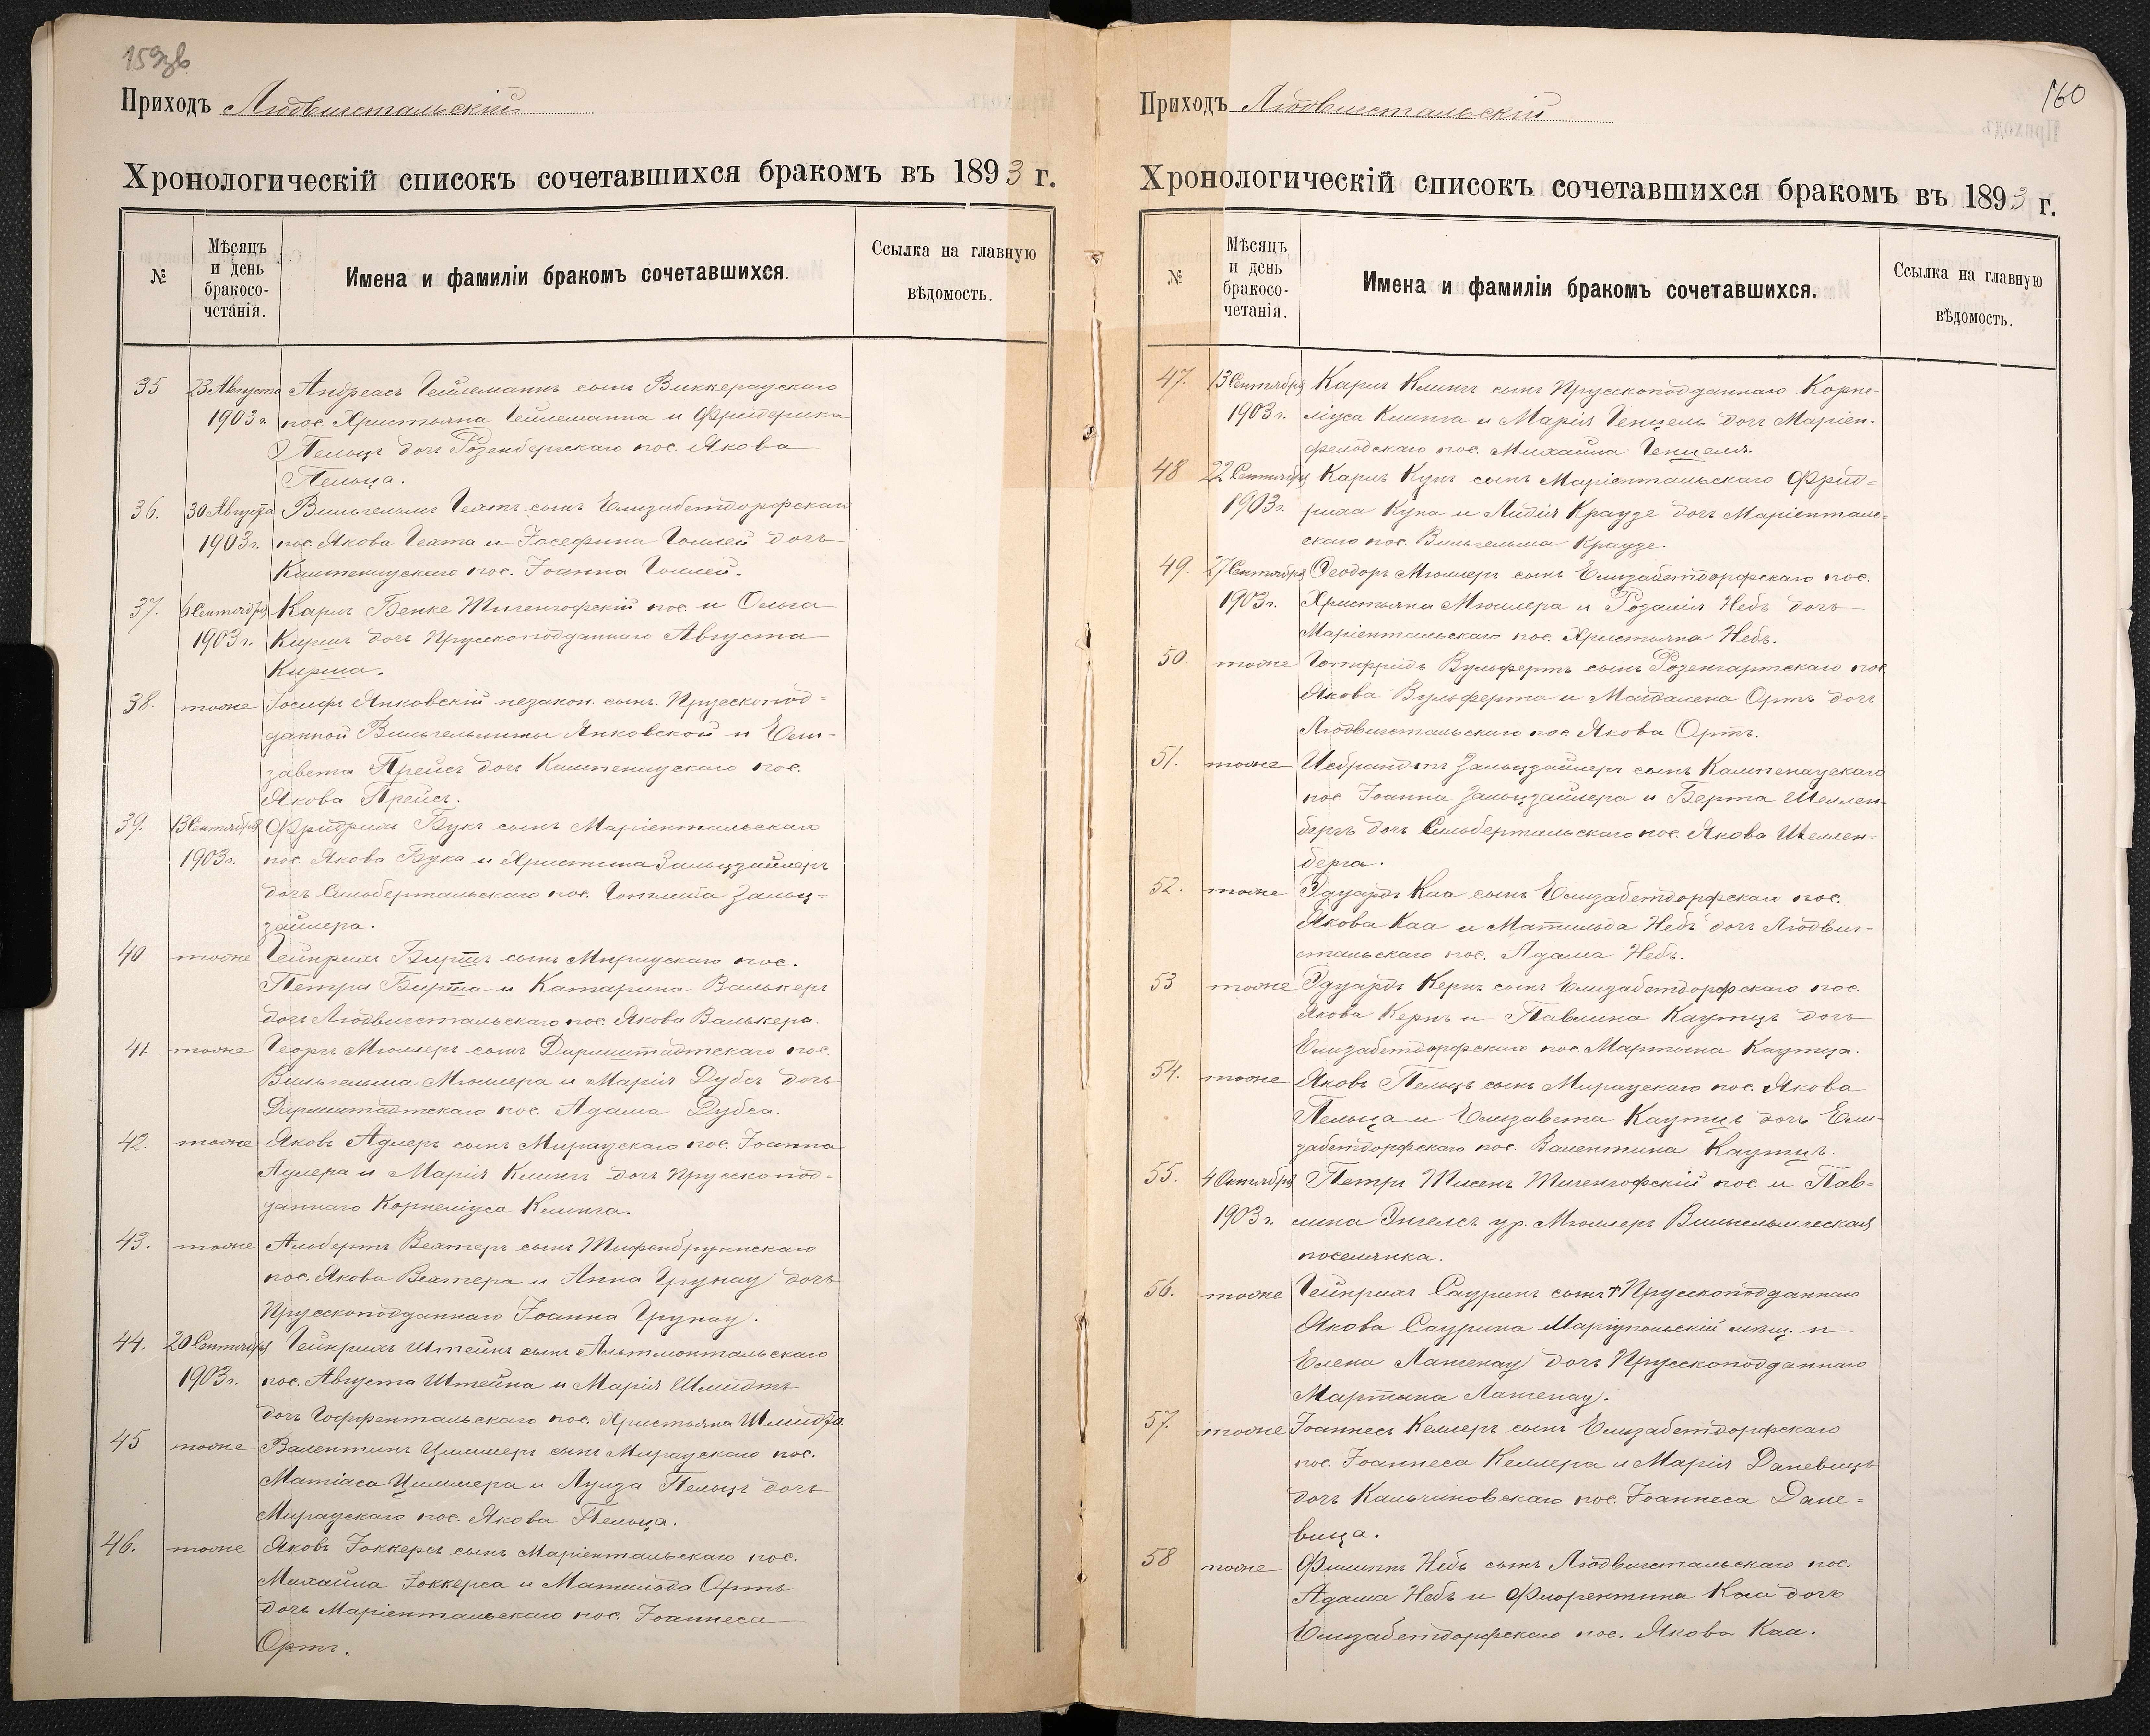 159об
Приходъ Людвигстальскій
Хронологическій списокъ сочетавшихся бракомъ въ 1893 г.
№
Мѣсяцъ
и день
бракосо-
четанія.
Имена и фамиліи бракомъ сочетавшихся.
Ссылка на главную
вѣдомость.
35 23 Августа Андреасъ Гейлеманнъ сынъ Виккераускаго
1903 г. пос. Христьяна Гейлеманна и Фридерика
Пельцъ дочь Розенбергскаго пос. Якова
Пельца.
36. 30 Августа Вильгельмъ Гехтъ сынъ Елизабетдорфскаго
1903 г. пос. Якова Гехта и Іосефина Голлей дочь
Кампенаускаго пос. Іоанна Голлей.
37. 6 Сентября Карлъ Бенке Тигенгофскій пос. и Ольга
1903 г. Киршъ дочь Прусскоподданнаго Августа
Кирша.
38. тоже Іосифъ Янковскій незакон. сынъ Прусскопод-
данной Вильгельмины Янковской и Ели-
завета Прейсъ дочь Кампенаускаго пос.
Якова Прейсъ.
39. 13 Сентября Фридрихъ Букъ сынъ Маріентальскаго
1903 г. пос. Якова Бука и Христина Зальцзайлеръ
дочь Сильбертальскаго пос. Готлиба Зальц-
зайлера.
40 тоже Гейнрихъ Биртъ сынъ Мираускаго пос.
Петра Бирта и Катарина Валькеръ
дочь Людвигстальскаго пос. Якова Валькера.
41. тоже Георгъ Мюллеръ сынъ Дармштадтскаго пос.
Вильгельма Мюллера и Марія Дубсъ дочь
Дармштадтскаго пос. Адама Дубса.
42. тоже Яковъ Адлеръ сынъ Мираускаго пос. Іоанна
Адлера и Марія Клингъ дочь Прусскопод-
даннаго Корнеліуса Клинга.
43. тоже Альбертъ Вехтеръ сынъ Тифенбруннскаго
пос. Якова Вехтера и Анна Грунау дочь
Прусскоподданнаго Іоанна Грунау.
44. 20 Сентября Гейнрихъ Штейнъ сынъ Альтмонтальскаго
1903 г. пос. Августа Штейна и Марія Шмидтъ
дочь Гоффентальскаго пос. Христьяна Шмидта.
45 тоже Валентинъ Циммеръ сынъ Мираускаго пос.
Матіаса Циммера и Луиза Пельцъ дочь
Мираускаго пос. Якова Пельца.
46. тоже Яковъ Іоккерсъ сынъ Маріентальскаго пос.
Михаила Іоккерса и Матильда Ортъ
дочь Маріентальскаго пос. Іоаннеса
Ортъ.
160
Приходъ Людвигстальскій
Хронологическій списокъ сочетавшихся бракомъ въ 1893 г.
№
Мѣсяцъ
и день
бракосо-
четанія.
Имена и фамиліи бракомъ сочетавшихся.
Ссылка на главную
вѣдомость.
47. 13 Сентября Карлъ Клингъ сынъ Прусскоподданнаго Корне-
1903 г. ліуса Клинга и Марія Генцель дочь Маріен-
фельдскаго пос. Михаила Генцеля.
48 22 Сентября Карлъ Кунъ сынъ Маріентальскаго Фрид-
1903 г. риха Куна и Лидія Краузе дочь Маріенталь-
скаго пос. Вильгельма Краузе.
49. 27 Сентября Ѳеодоръ Мюллеръ сынъ Елизабетдорфскаго пос.
1903 г. Христьяна Мюллера и Розалія Небъ дочь
Маріентальскаго пос. Христьяна Небъ.
50. тоже Готфридъ Вульфертъ сынъ Розенгартскаго пос.
Якова Вульферта и Магдалена Ортъ дочь
Людвигстальскаго пос. Якова Ортъ.
51. тоже Исбрандтъ Зальцзайлеръ сынъ Кампенаускаго
пос Іоанна Зальцзайлера и Берта Шеллен-
бергъ дочь Сильбертальскаго пос. Якова Шеллен-
берга.
52. тоже Эдуардъ Каа сынъ Елизабетдорфскаго пос.
Якова Каа и Матильда Небъ дочь Людвиг-
стальскаго пос. Адама Небъ.
53 тоже Эдуардъ Кернъ сынъ Елизабетдорфскаго пос.
Якова Кернъ и Павлина Каутцъ дочь
Елизабетдорфскаго пос. Мартына Каутца.
54. тоже Яковъ Пельцъ сынъ Мираускаго пос. Якова
Пельца и Елизавета Каутцъ дочь Ели-
забетдорфскаго пос. Валентина Каутцъ.
55. 4 Октября Петръ Тисенъ Тигенгофскій пос. и Пав-
1903 г. лина Энгелсъ ур. Мюллеръ Вильгельмская
поселянка.
56. тоже Гейнрихъ Сауринъ сынъ † Прусскоподданнаго
Якова Саурина Маріупольскій мѣщ. и
Елена Лашенау дочь Прусскоподданнаго
Мартына Лашенау.
57. тоже Іоаннесъ Келлеръ сынъ Елизабетдорфскаго
пос. Іоаннеса Келлера и Марія Даневицъ
дочь Кальчиновскаго пос. Іоаннеса Дане-
вица.
58 тоже Филиппъ Небъ сынъ Людвигстальскаго пос.
Адама Небъ и Флорентина Каа дочь
Елизабетдорфскаго пос. Якова Каа.